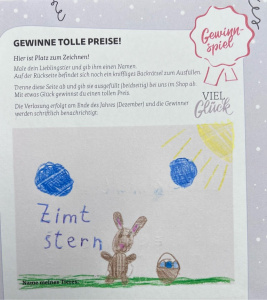 Gewinn-
spiel
GEWINNE TOLLE PREISE!
Hier ist Platz zum Zeichnen!
Male dein Lieblingstier und gib ihm einen Namen.
Auf der Rückseite befindet sich noch ein kniffliges Backrätsel zum Ausfüllen.
Trenne diese Seite ab und gib sie ausgefüllt (beidseitig) bei uns im Shop ab.
Mit etwas Glück gewinnst du einen tollen Preis.
Die Verlosung erfolgt am Ende des Jahres (Dezember) und die Gewinner
werden schriftlich benachrichtigt.
VIEL
Glück
Zimt
stern
Name meines Tieres